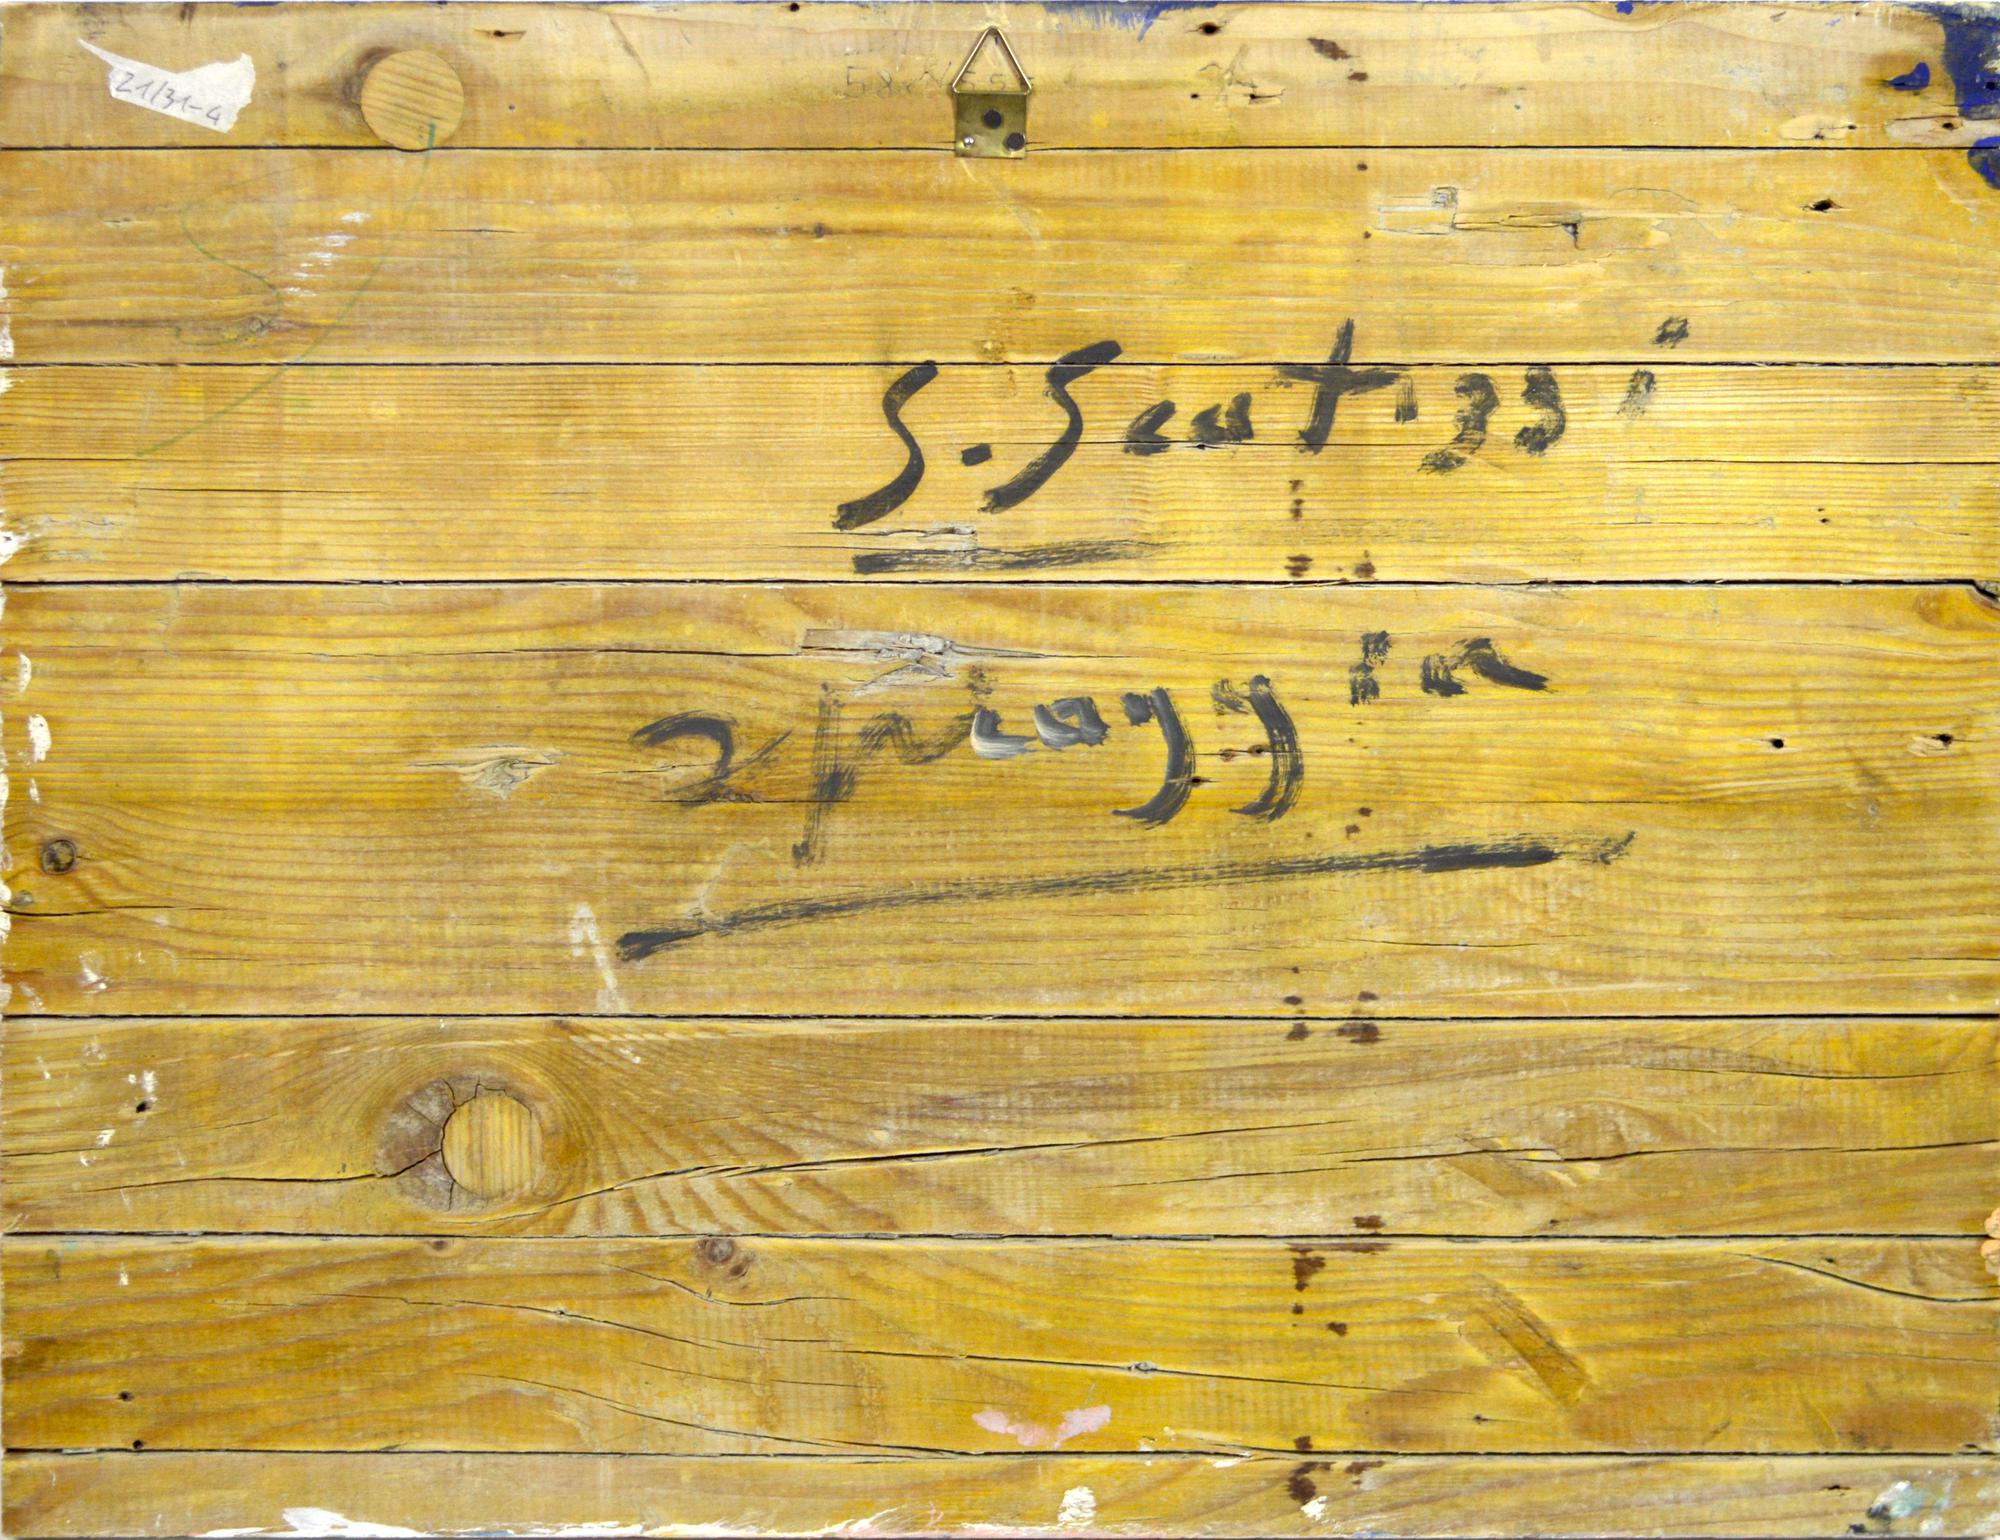 21/31-4
S. Scatizzi
spiaggia